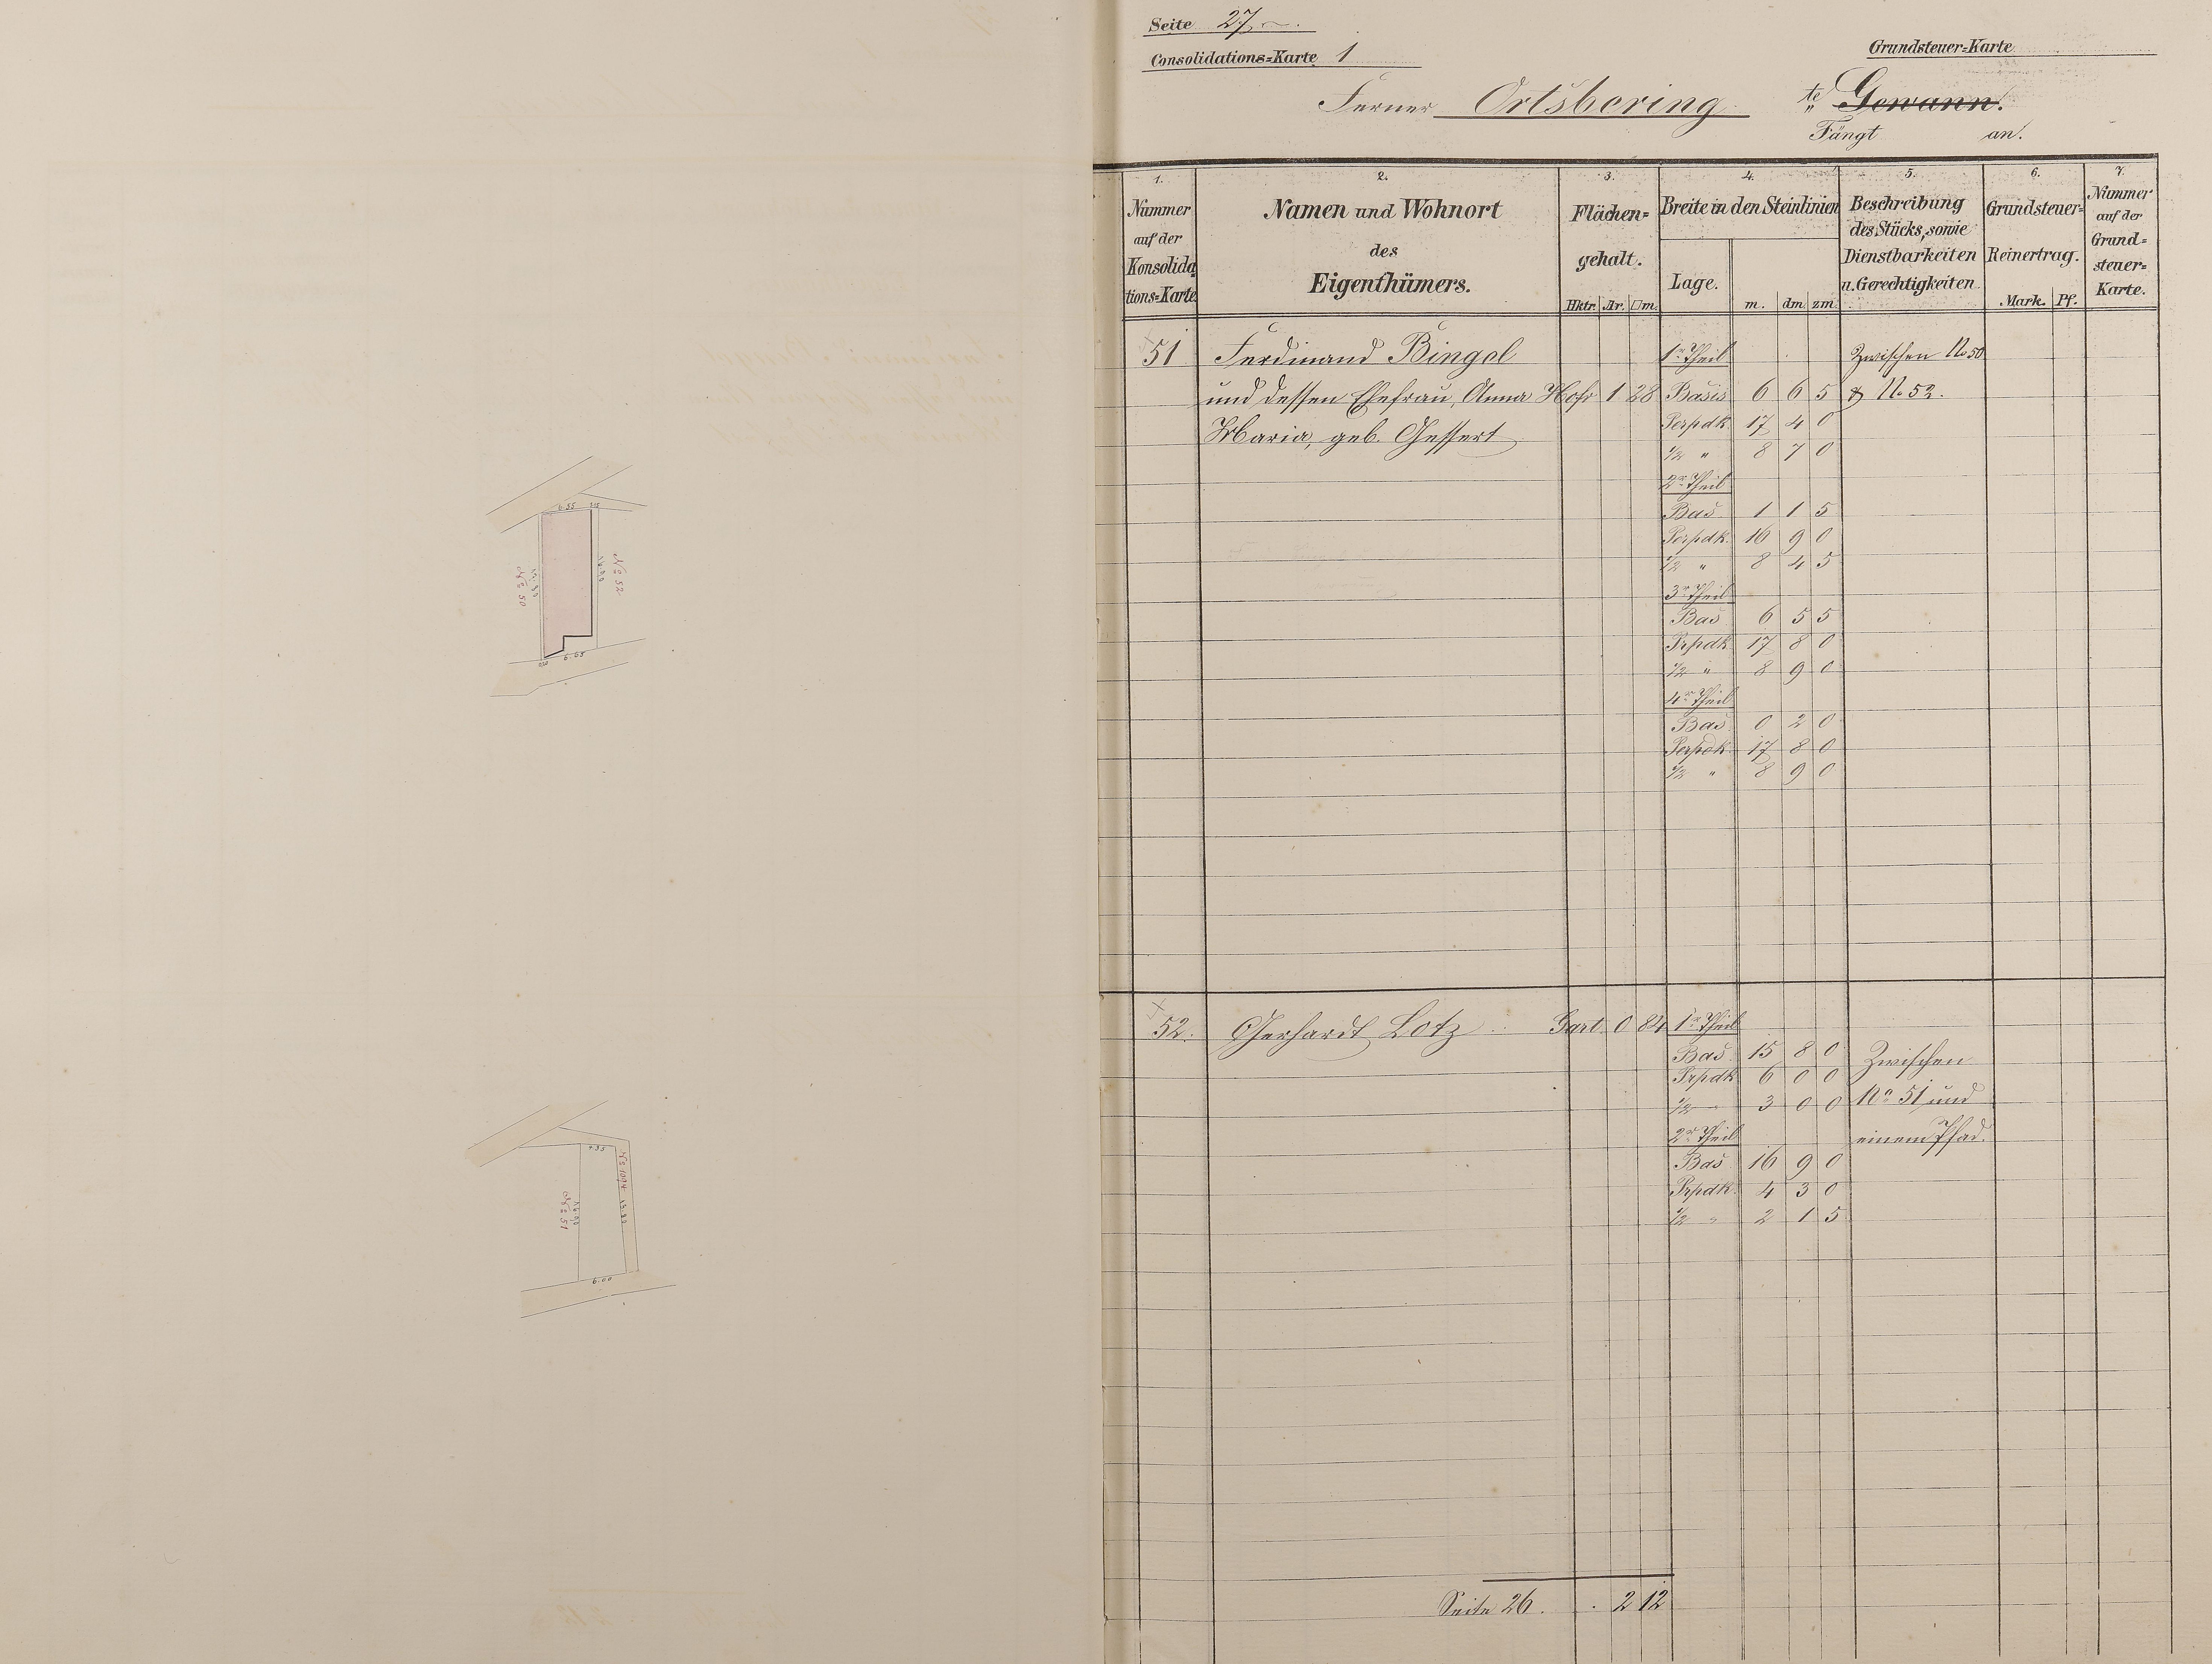 Seite 27
Consolidations=Karte 1
Grundsteuer=Karte
Ferner Ortsbering te Gewann.
Fängt an.
1. 2. 3. 4. 5. 6. 7.
Nummer auf der Konsolidations=Karte
Namen und Wohnort des Eigenthümers.
Flächen=gehalt.
Hktr. Ar. □m.
Breite in den Steinlinien
Lage. m. dm zm
Beschreibung des Stücks, sowie Dienstbarkeiten u. Gerechtigkeiten
Grundsteuer=Reinertrag.
Mark. Pf.
Nummer auf der Grund=steuer=Karte.
51 Ferdinand Bingel 1r Theil Zwischen No 50
und dessen Ehefrau, Anna Hofr 1 28 Basis 6 6 5 & No 52.
Maria, geb. Gessert Perpdk 17 4 0
1/2 " 8 7 0
2r Theil
Bas 1 1 5
Perpdk. 16 9 0
1/2 " 8 4 5
3r Theil
Bas 6 5 5
Prpdk 17 8 0
1/2 " 8 9 0
4r Theil
Bas 0 2 0
Perpdk 17 8 0
1/2 " 8 9 0
52. Gerhardt Lotz Gart. 0 84 1r Theil
Bas 15 8 0 Zwischen
Prpdk 6 0 0
1/2 " 3 0 0 No 51 und
2r Theil einem Pfad.
Bas 16 9 0
Prpdk. 4 3 0
1/2 " 2 1 5
Seite 26. . 2 12
6.55
No 52
No 50
6.65
No 51
No 1094
6.00